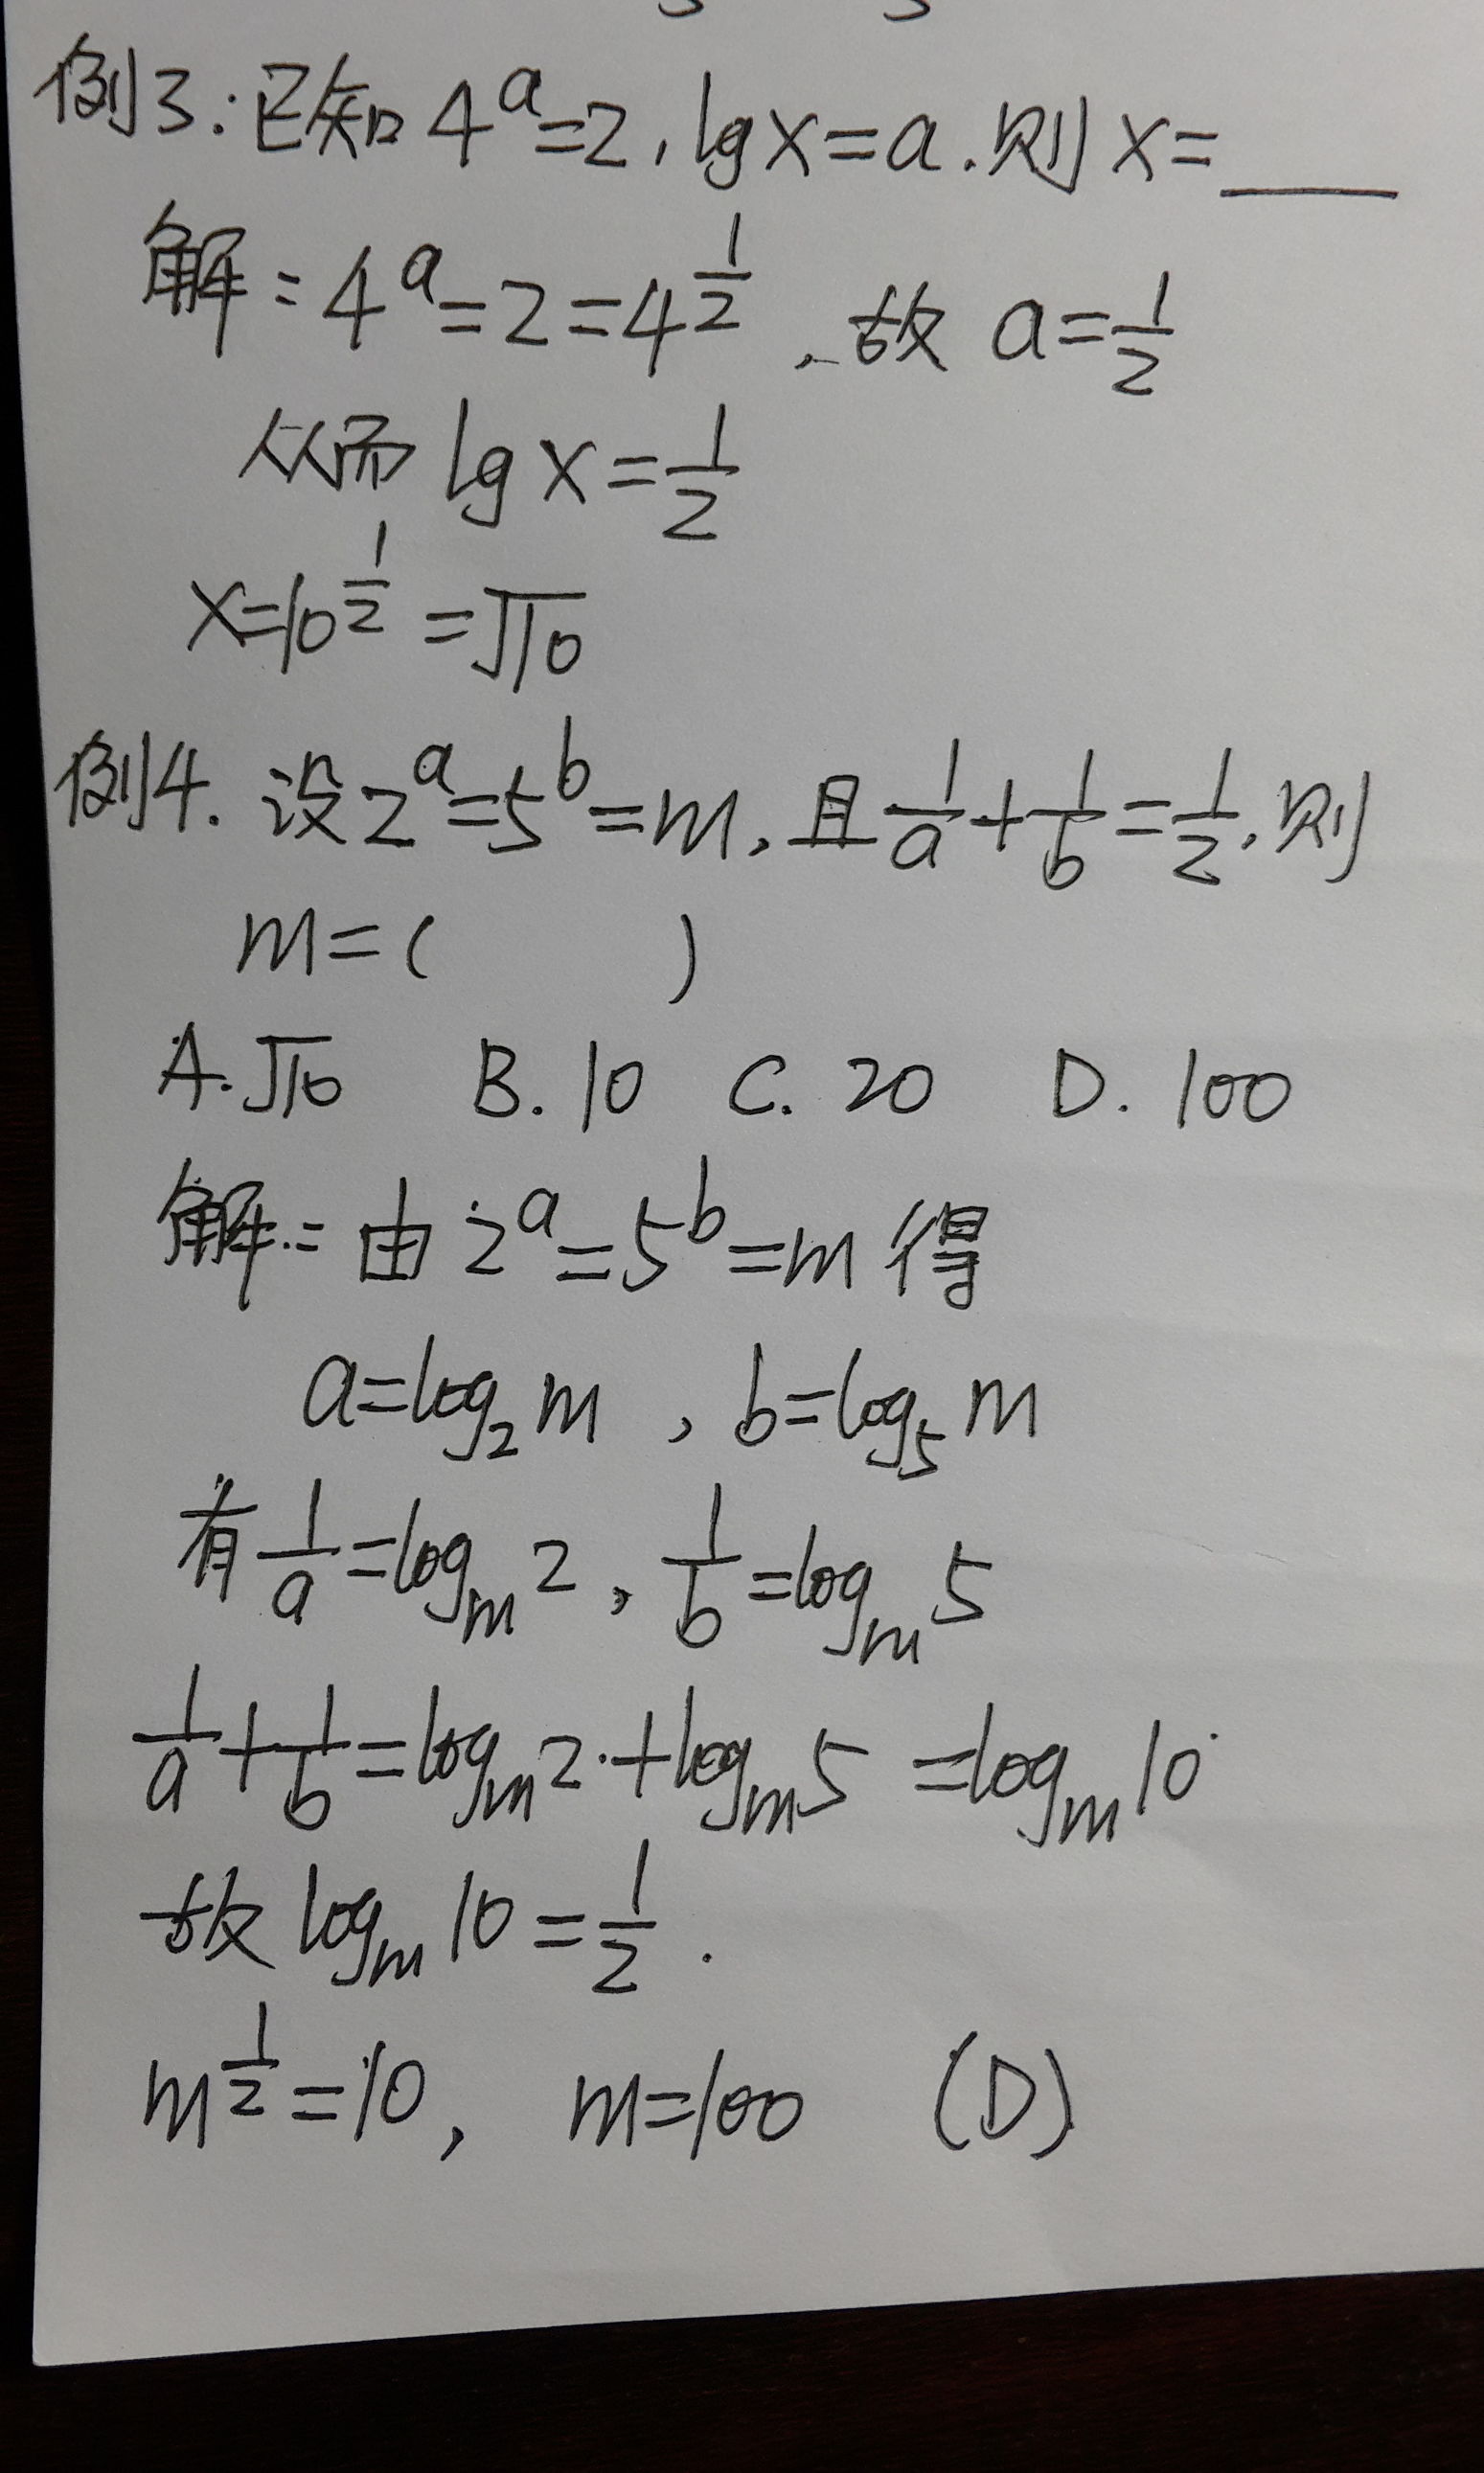 例3:已知 4^a=2, lg x=a. 则 x=____
解: 4^a=2=4^{1/2}, 故 a=1/2
从而 lg x=1/2
x=10^{1/2}=√10
例4. 设 2^a=5^b=m, 且 1/a+1/b=1/2, 则
m=( )
A. √10 B. 10 C. 20 D. 100
解: 由 2^a=5^b=m 得
a=log₂m, b=log₅m
有 1/a=log_m 2, 1/b=log_m 5
1/a+1/b=log_m 2+log_m 5=log_m 10
故 log_m 10=1/2.
m^{1/2}=10, m=100 (D)